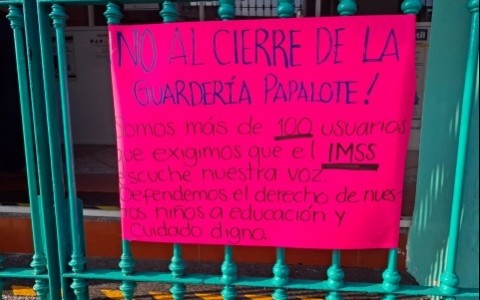 NO AL CIERRE DE LA
GUARDERÍA PAPALOTE!
Somos más de 100 usuarios
que exigimos que el IMSS
escuche nuestra voz.
Defendemos el derecho de nues-
tros niños a educación y
Cuidado digno.